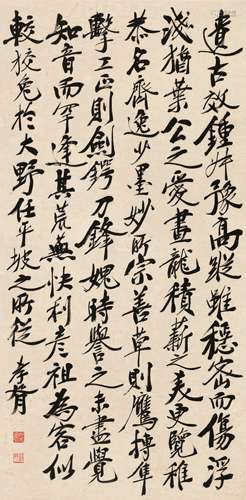 遺古效鍾如豫高蹤雖穩密而傷浮
淺猶葉公之愛畫龍積薪之美更覽稚
恭名齊逸少墨妙所宗善草則鷹搏隼
擊工正則劍鍔刀鋒愧時譽之未盡覺
知音而罕逢其荒蕪快利彥祖為容似
較狡兔於大野任平坡之所從 孝胥